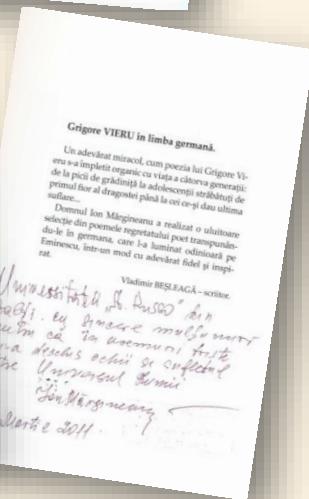 Grigore VIERU în limba germană.
Un adevărat miracol, cum poezia lui Grigore Vi-
eru s-a împletit organic cu viața a câtorva generații:
de la picii de grădiniță la adolescenții străbătuți de
primul fior al dragostei până la cei ce-și dau ultima
suflare...
Domnul Ion Mărgineanu a realizat o uluitoare
selecție din poemele regretatului poet transpunân-
du-le în germana, care l-a luminat odinioară pe
Eminescu, într-un mod cu adevărat fidel și inspi-
rat.
Vladimir BEȘLEAGĂ – scriitor.
Universității „A. Russo" din
cu sincere mulțumiri
că în vremuri triste
deschis ochii și sufletul
Universul Lumii
Ion Mărgineanu
Martie 2011.